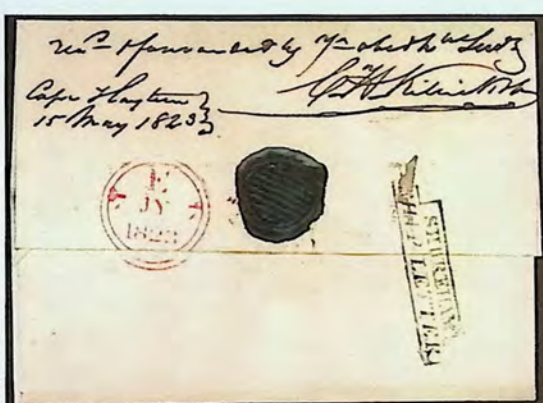 recd & forwarded by Yr obedt Servt
Cape Haytien
15 May 1823
JY
1823
SHOREHAM
SHIP LETTER